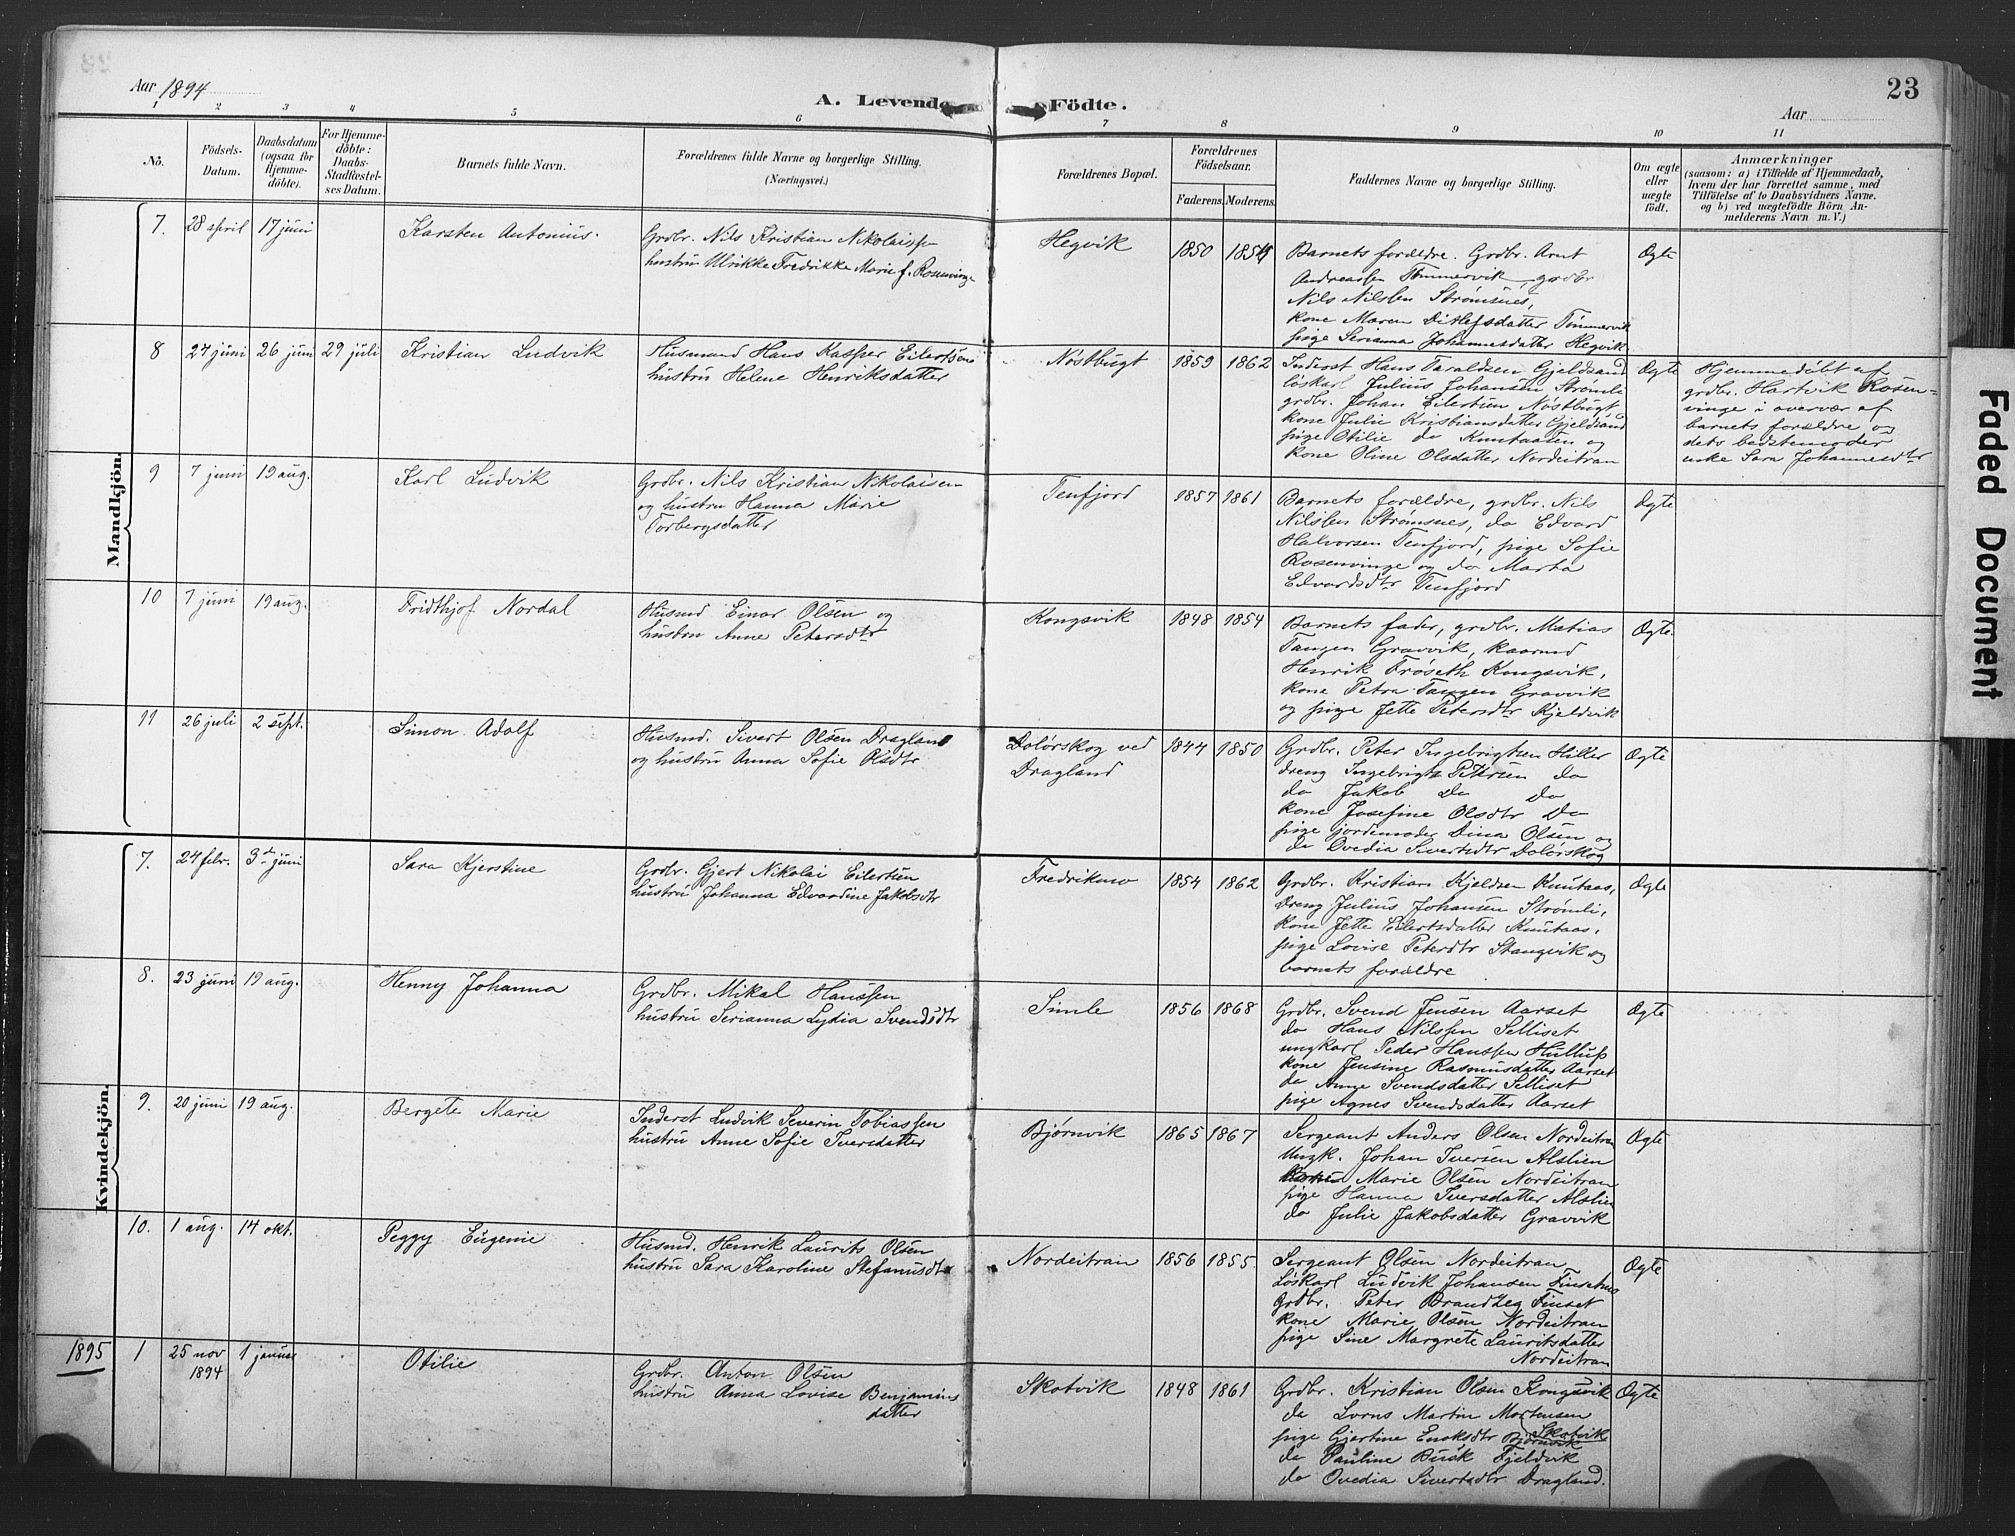 Aar 1894
A. Levende Födte.
23
Aar
1 2 3 4 5 6 7 8 9 10 11
No.
Födsels-
Datum.
Daabsdatum
(ogsaa for
Hjemme-
döbte).
For Hjemme-
döbte:
Daabs-
Stadfæstel-
ses Datum.
Barnets fulde Navn.
Forældrenes fulde Navne og borgerlige Stilling.
(Næringsvei.)
Forældrenes Bopæl.
Forældrenes
Födselsaar.
Faderens. Moderens.
Faddernes Navne og borgerlige Stilling.
Om ægte
eller
uægte
födt.
Anmærkninger
(saasom: a) i Tilfælde af Hjemmedaab,
hvem der har forrettet samme, med
Tilföielse af to Daabsvidners Navne.
og b) ved uægtefödte Börn An-
melderens Navn m. V.)
Mandkjön.
7. 28 april 17 juni Karsten Antonius.
Grdbr. Nils Kristian Nikolaissen
hustru Ulrikke Fredrikke Marie f. Rosenvinge
Hegvik 1850 1854
Barnets forældre. Grdbr. Arnt
Andreassen Tømmervik, grdbr
Nils Nilssen Strømsnes,
kone Maren Ditlefsdatter Tømmervik
pige Serianna Johannesdatter Hegvik
Ægte
8 24 juni 26 juni 29 juli Kristian Ludvik
Husmand Hans Kasper Eilertsen
hustru Helene Henriksdatter
Nøstbugt 1859 1862
Inderst Hans Taraldsen Gjeldsand
løskarl Julius Johansen Strømli
grdbr. Johan Eilertsen Nøstbugt
kone Julie Kristiansdatter Gjeldsand
pige Otilie do Knutaasen og
kone Oline Olsdatter Nordeitran
Ægte
Hjemmedøbt af
grdbr. Hartvik Rosen-
vinge i overvær af
barnets forældre og
dets bedstemoder
enke Sara Johannesdtr
9 7 juni 19 aug. Karl Ludvik
Grdbr. Nils Kristian Nikolaisen
og hustru Hanna Marie
Torbergsdatter
Tenfjord 1857 1861
Barnets forældre, grdbr. Nils
Nilssen Strømsnes, do Edvard
Halvorsen Tenfjord, pige Sofie
Rosenvinge og do Marta
Edvardsdtr Tenfjord
Ægte
10 7 juni 19 aug. Fridthjof Nordal
Husmd Einar Olsen og
hustru Anne Petersdtr
Kongsvik 1848 1854
Barnets fader, grdbr. Matias
Tangen Gravvik, kaarmd
Henrik Frøseth Kongsvik,
kone Petra Tangen Gravvik
og pige Jette Petersdtr Kjeldvik
Ægte.
11 26 juli 2 sept. Simon Adolf
Husmd. Sivert Olsen Dragland
og hustru Anna Sofie Olsdtr
Dolørskog ved
Dragland
1844 1850
Grdbr. Peter Ingebrigtsen Hiller
dreng Ingebrigt Petersen do
do Jakob do do
kone Josefine Olsdtr do
pige jordemoder Dina Olsen og
do Ovedia Sivertsdtr Dolørskog
Ægte
Kvindekjön.
7. 24 febr. 3de juni Sara Kjerstine
Grdbr. Gjert Nikolai Eilertsen
hustru Johanna Edvardine Jakobsdtr
Fredriksmo 1854 1862
Grdbr. Kristian Kjeldsen Knutaas,
Dreng Julius Johansen Strømli,
kone Jette Eilertsdatter Knutaas,
pige Lovise Petersdtr Stangvik og
barnets forældre
Ægte
8. 23 juni 19 aug. Henny Johanna
Grdbr. Mikal Hanssen
hustru Serianna Lydia Svendsdtr
Simle 1856 1868
Grdbr. Svend Jensen Aarset
do Hans Nilssen Selliset
ungkarl Peder Hanssen Hullup
kone Jensine Rasmusdatter Aarset
do Anne Svendsdatter Selliset
pige Agnes Svendsdatter Aarset
Ægte
9. 20 juni 19 aug. Bergete Marie
Inderst Ludvik Severin Tobiassen
hustru Anne Sofie Iversdatter
Bjørnvik 1865 1867
Sergeant Anders Olsen Nordeitran
Ungk. Johan Iversen Alslien
Marie Olsen Nordeitran
pige Hanna Iversdatter Alslien
do Julie Jakobsdatter Gravvik
Ægte
10. 1 aug. 14 okt. Peggy Eugenie
Husmd. Henrik Laurits Olsen
hustru Sara Karoline Stefanusdtr
Nordeitran 1856 1855
Sergeant Olsen Nordeitran
Løskarl Ludvik Johansen Finsetmo
Grdbr. Peter Brandzeg Finset
kone Marie Olsen Nordeitran
pige Sine Margrete Lauritsdatter
Nordeitran
Ægte
1895 1 25 nov
1894
1 januar Otilie
Grdbr. Anton Olsen
hustru Anna Lovise Benjamins
datter
Skotvik 1848 1861
Grdbr. Kristian Olsen Kongsvik
do Lorns Martin Mortensen
Skotvik
pige Gjertine Enoksdtr Bjørnvik
do Pauline Busk Fjeldvik
do Ovedia Sivertsdtr Dragland.
Ægte
Faded Document